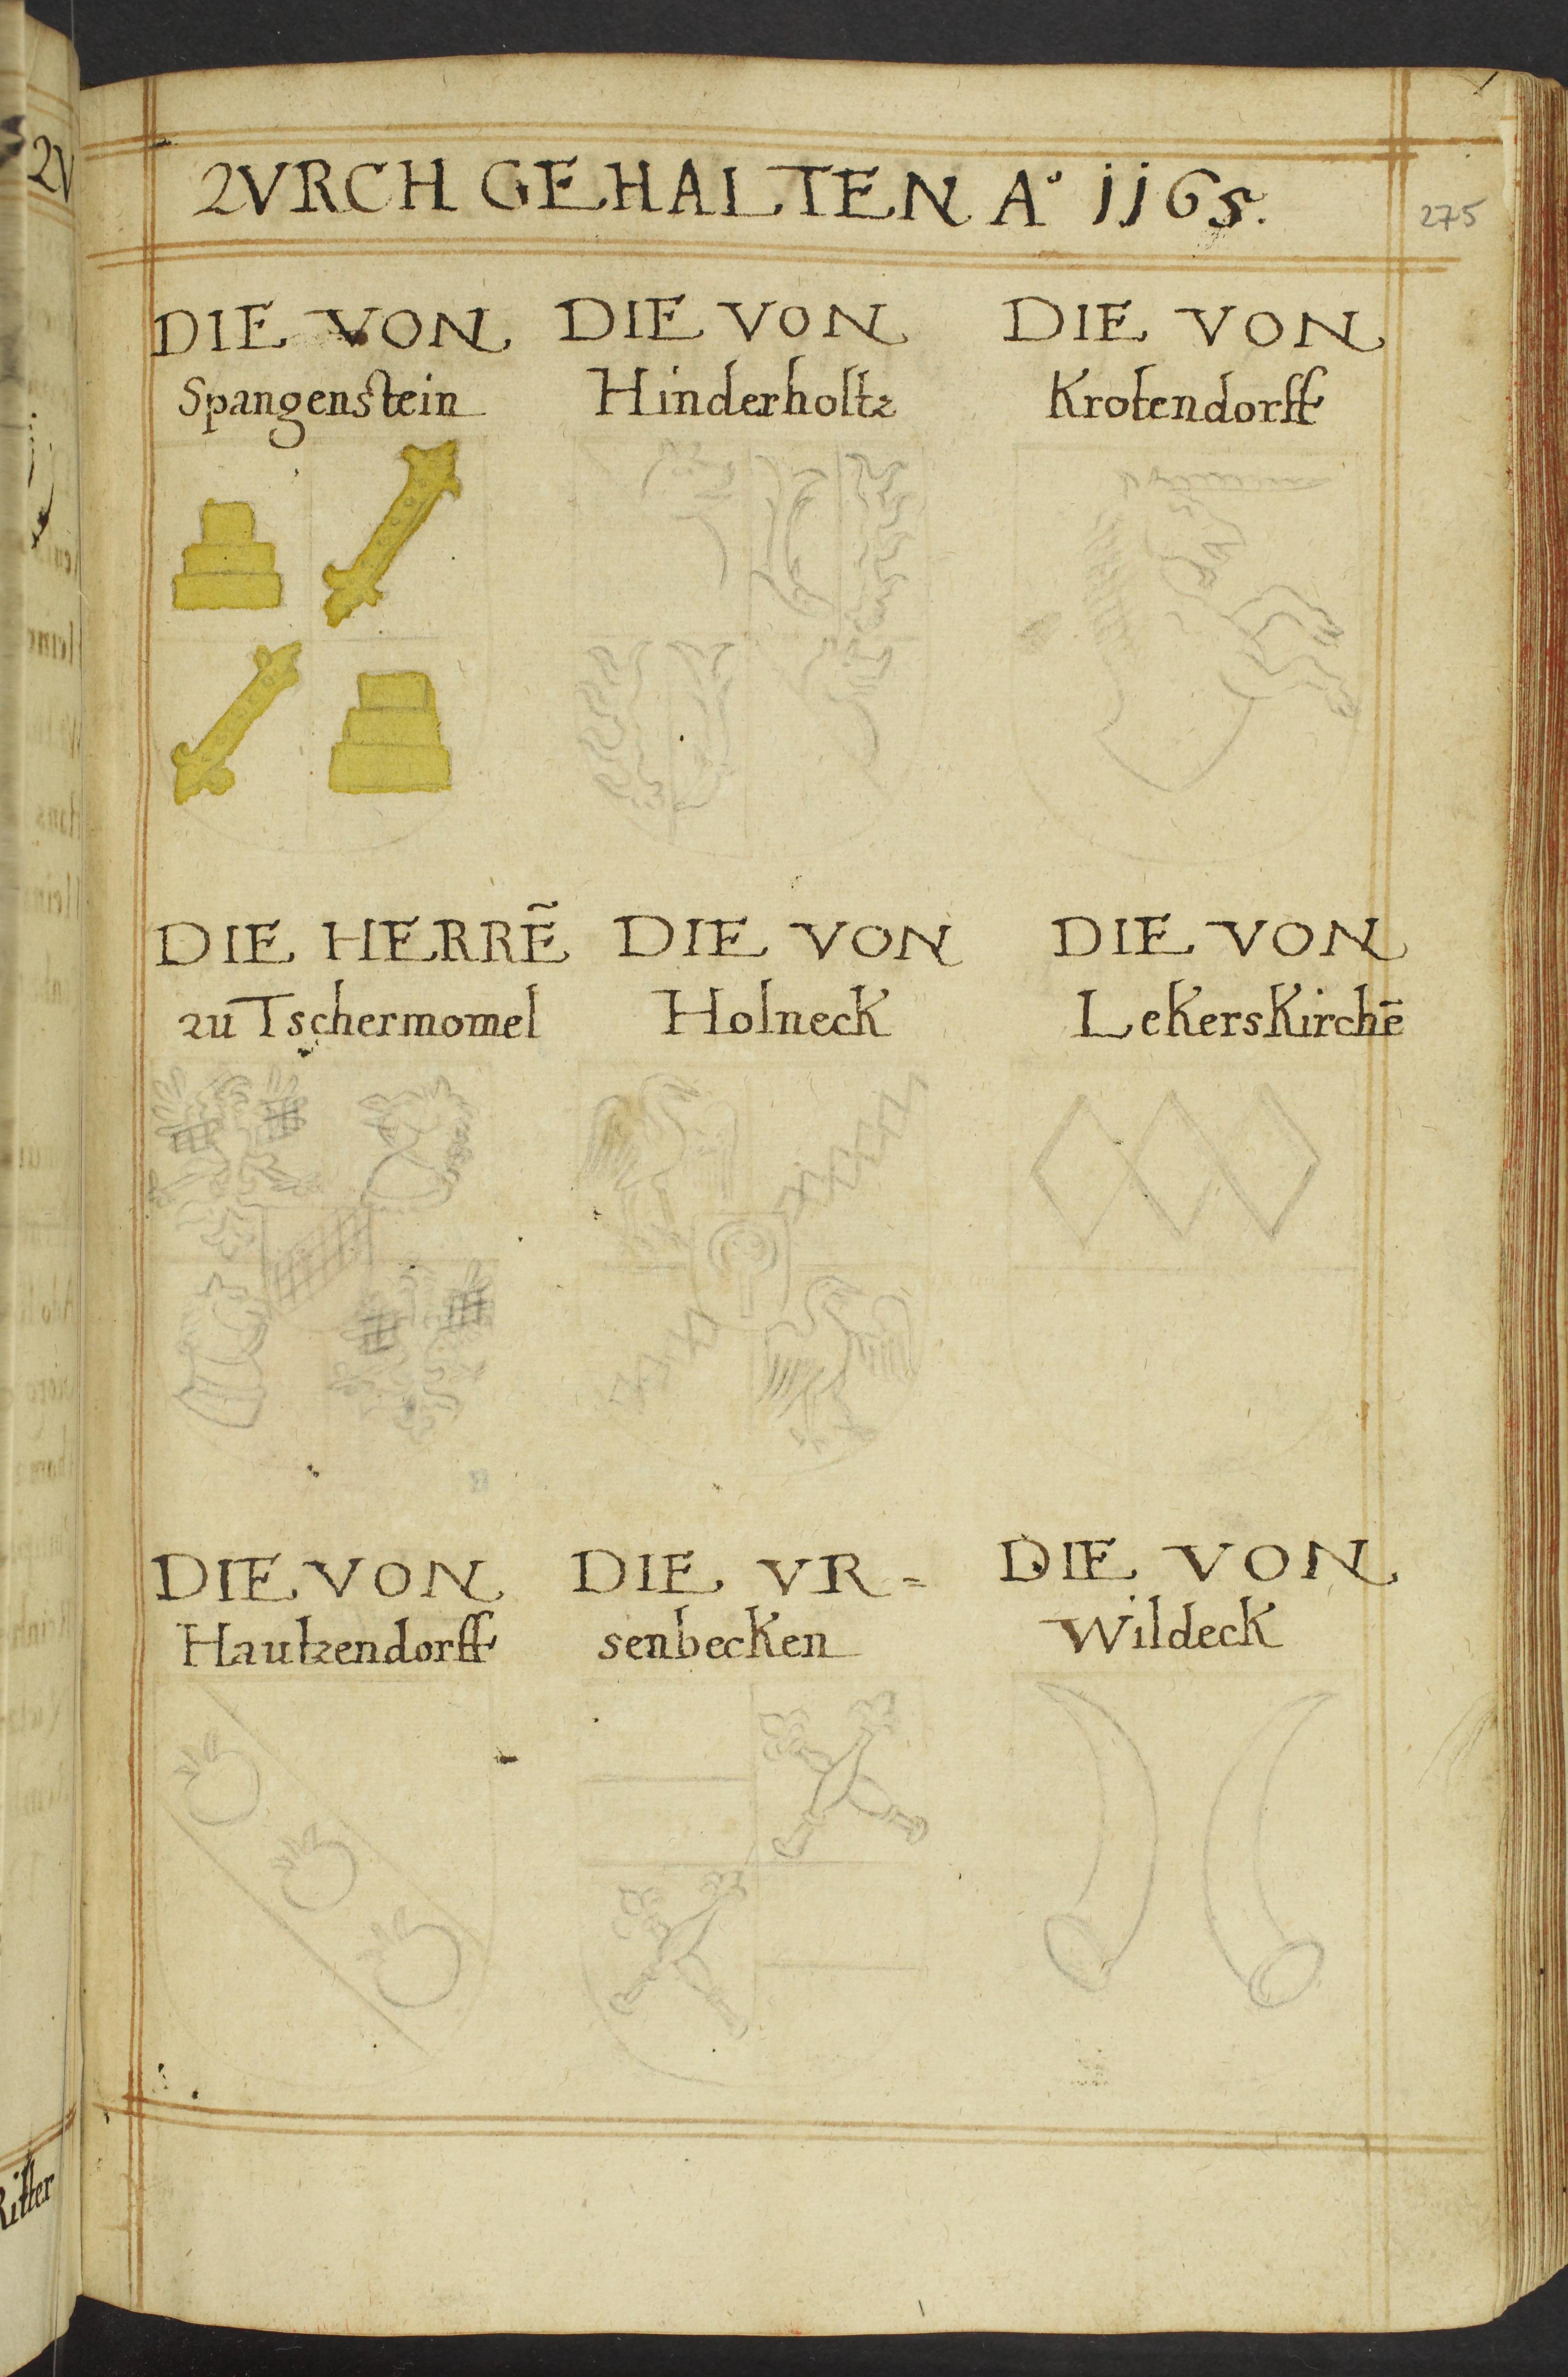 ZVRCH GEHALTEN Aº jj65.
275
DIE VON
Spangenstein
DIE VON
Hinderholtz
DIE VON
Krotendorff
DIE HERRẼ
zu Tschermomel
DIE VON
Holneck
DIE VON
Lekerskirchẽ
DIE VON
Hautzendorff
DIE VR=
senbecken
DIE VON
Wildeck
ZV
Ritter